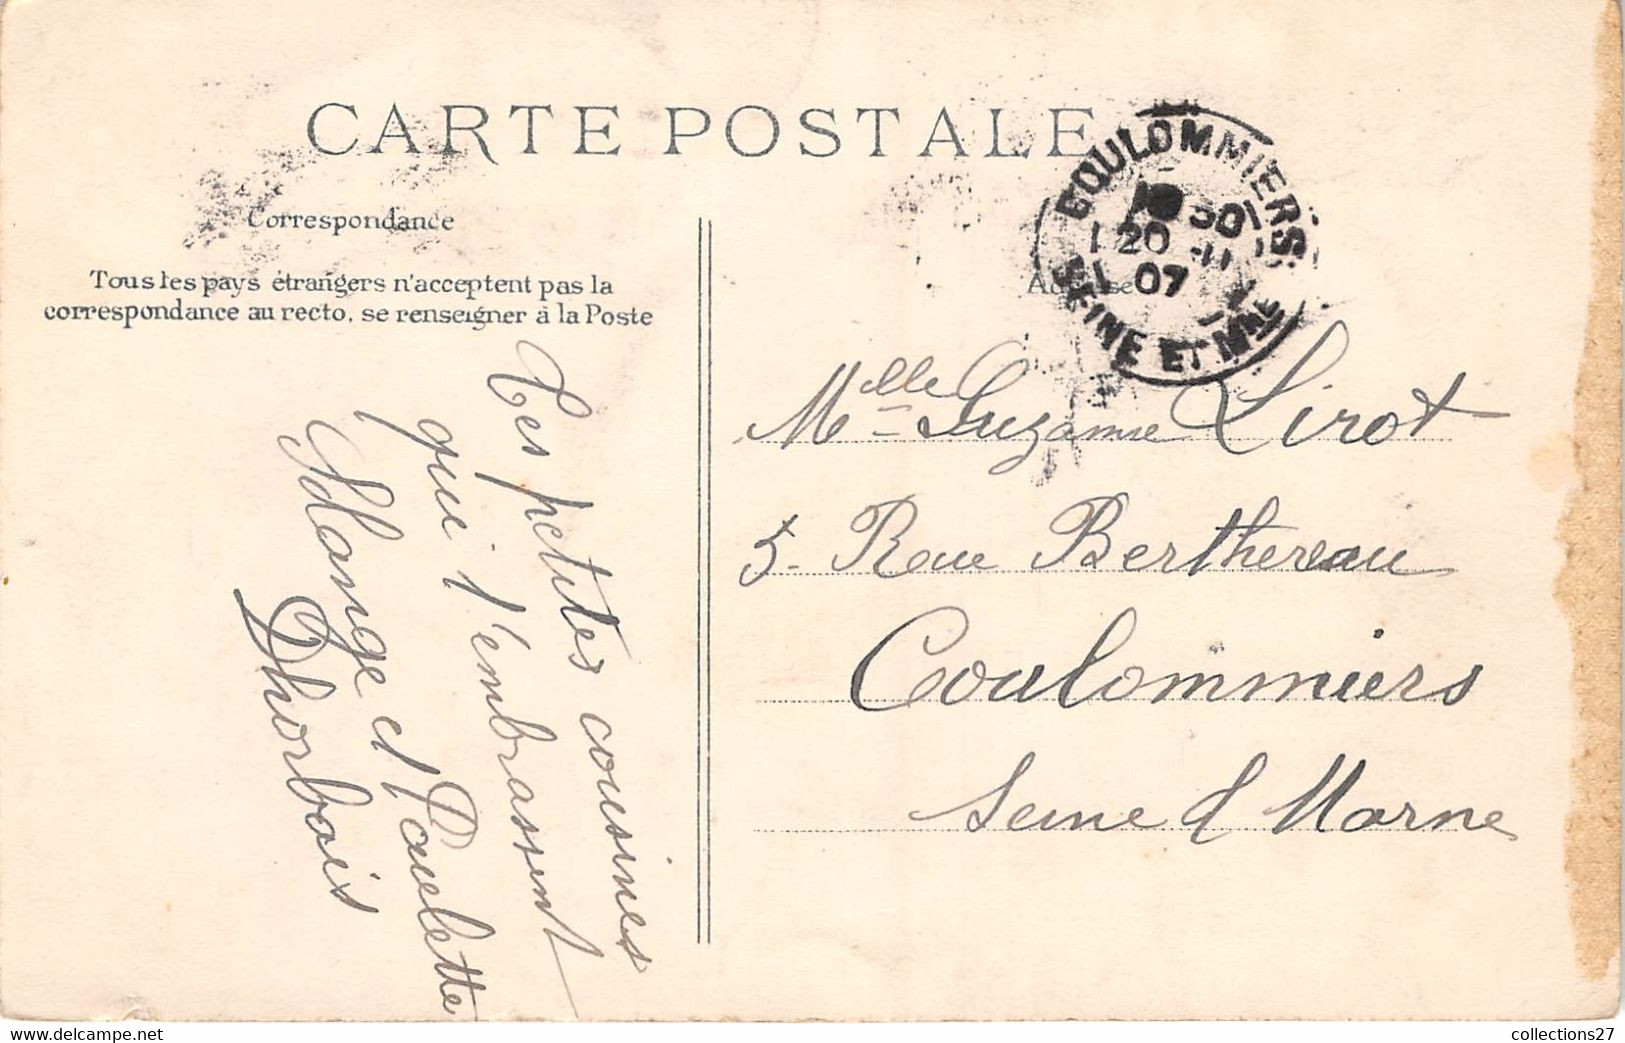 CARTE POSTALE
Correspondance
Tous les pays étrangers n'acceptent pas la
correspondance au recto, se renseigner à la Poste
Tes petites cousines
qui t'embrassent
Solange et Paulette
Dhorbais
COULOMMIERS
20
07
SEINE ET MNE
Adresse
Mlle Suzanne Lirot
5 - Rue Berthereau
Coulommiers
Seine & Marne
collections27